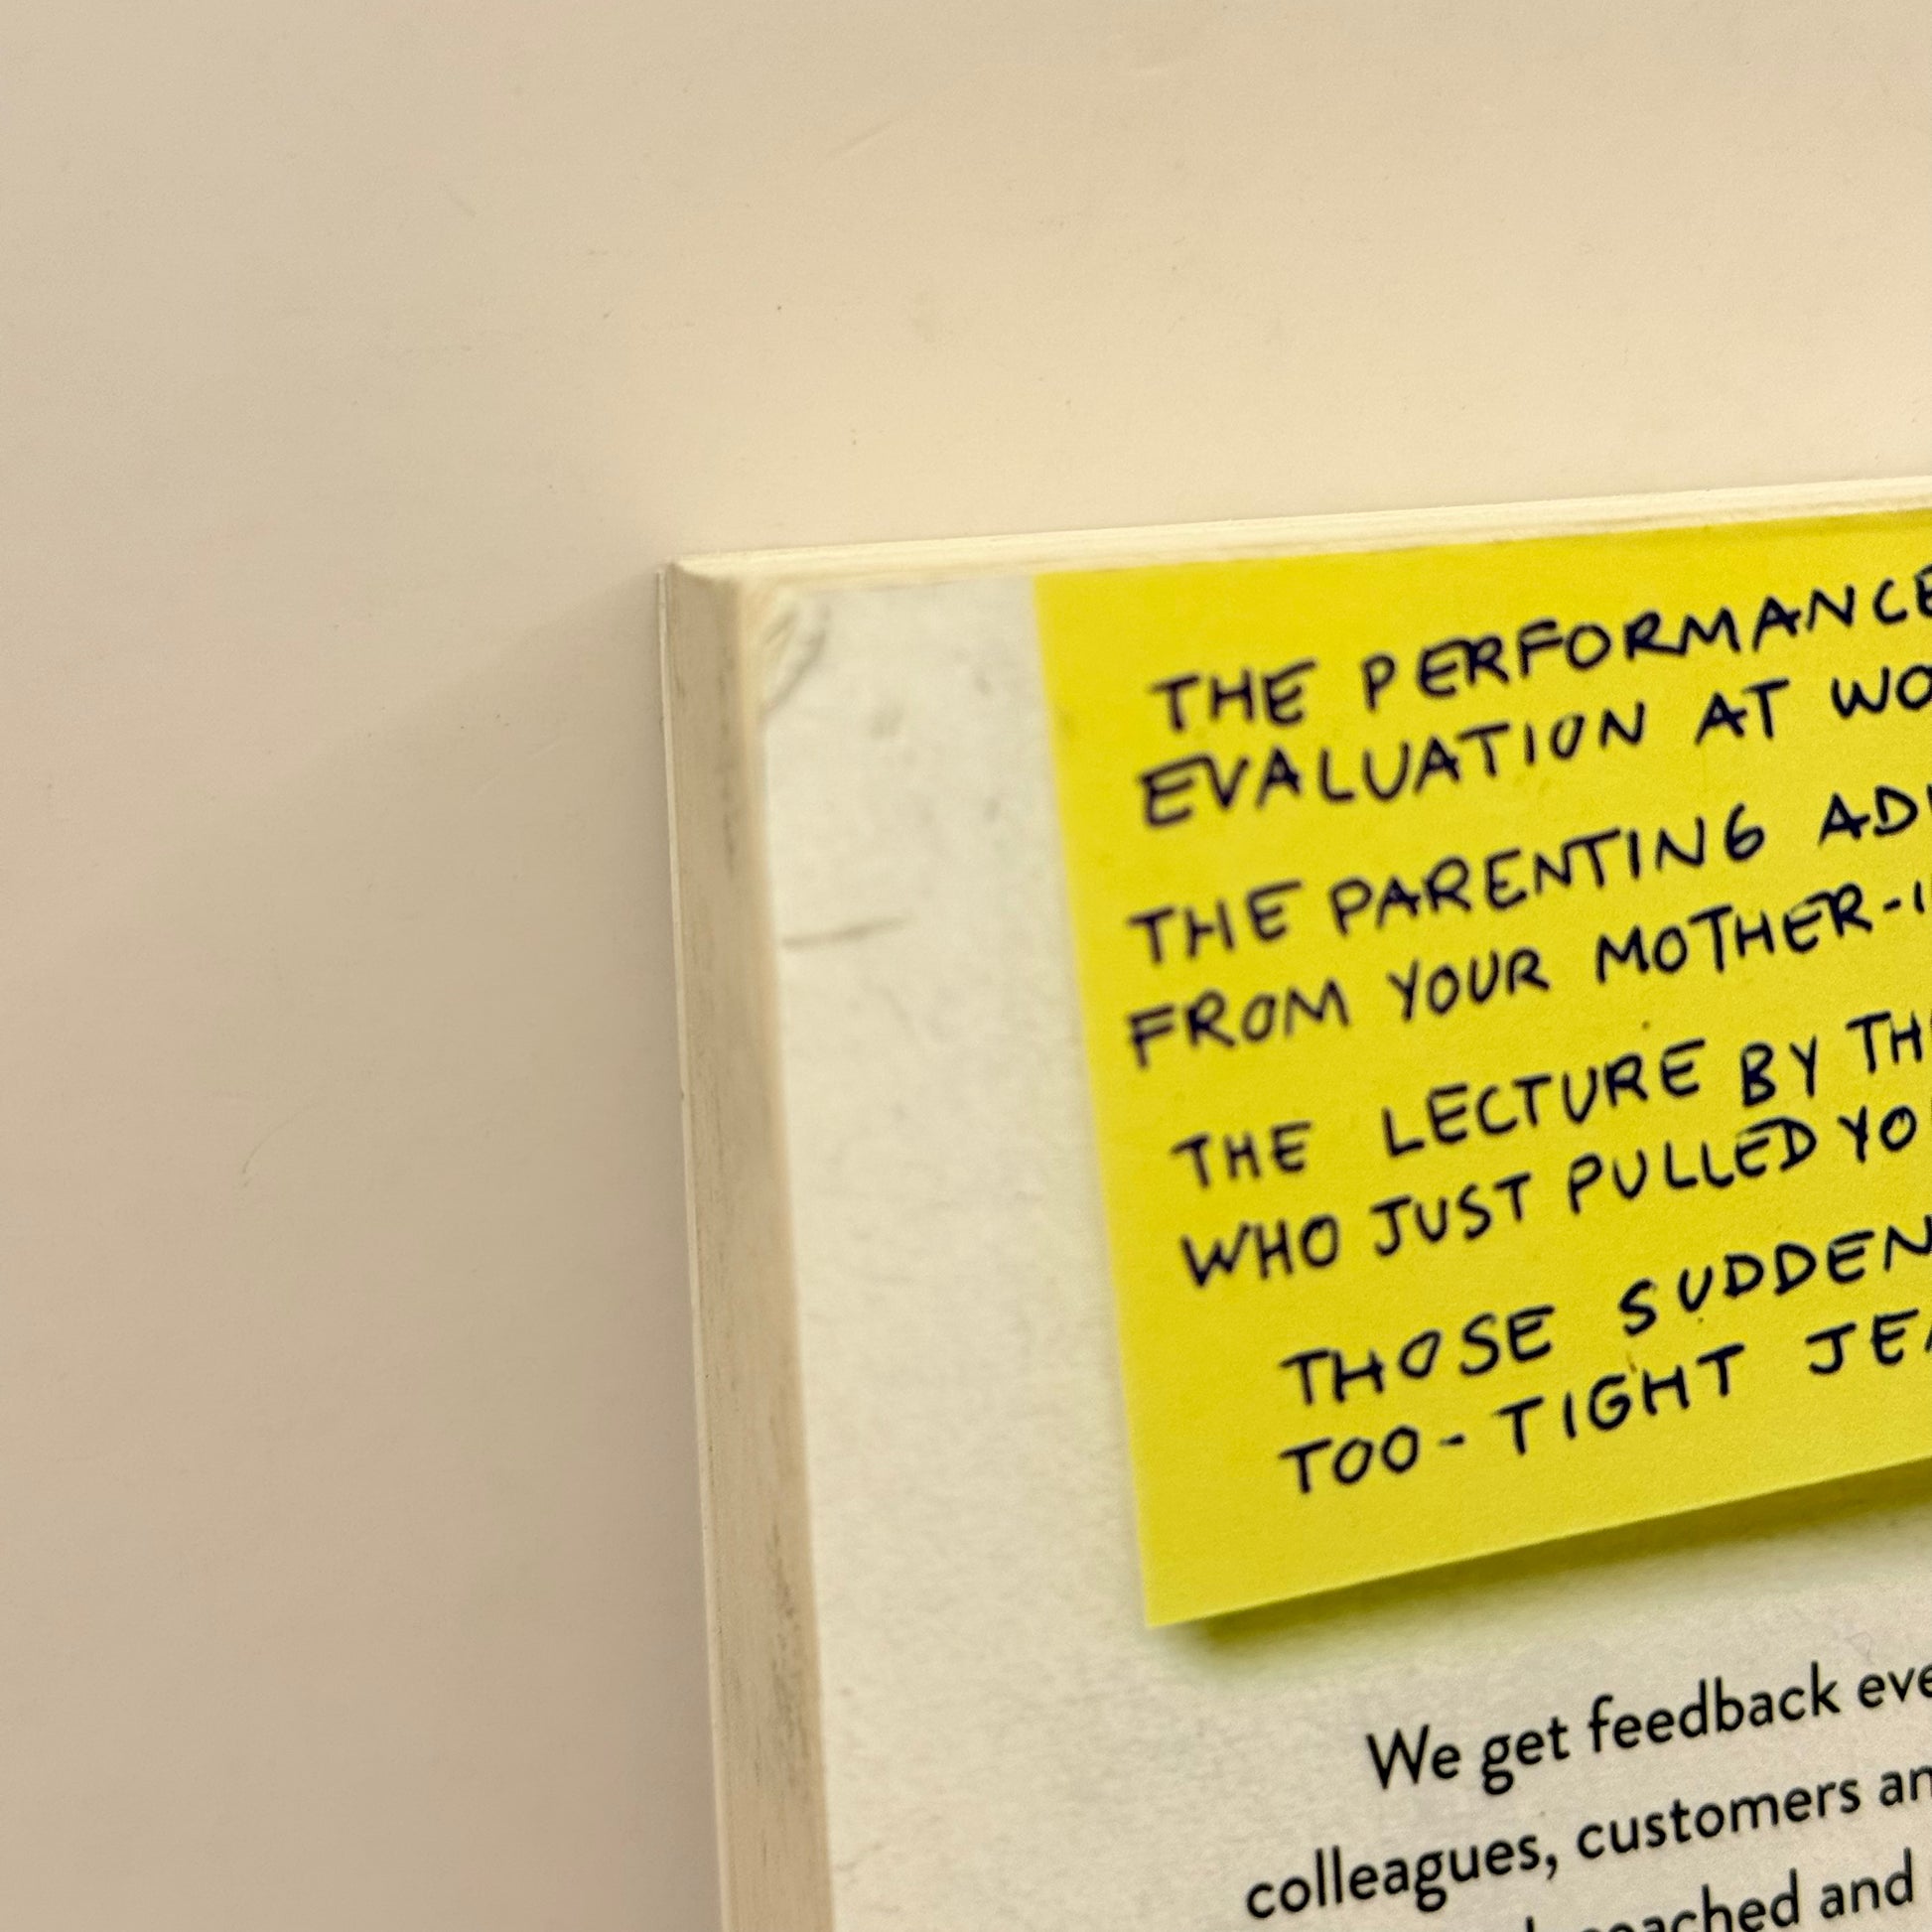 THE PERFORMANCE
EVALUATION AT
THE PARENTING
FROM YOUR MOTHER-
THE LECTURE BY
WHO JUST PULLED
THOSE
TOO-TIGHT
We get feedback
colleagues, customers
and